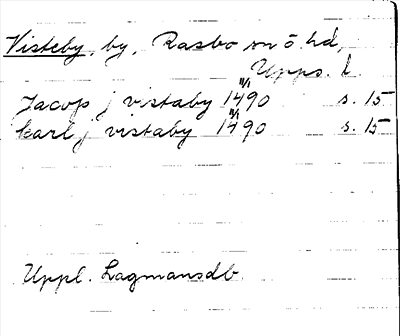 Visteby, by, Rasbo sn o hd,
Upps. l.
Jacop j vistaby 11/1 1490 s. 15
karl j vistaby 11/1 1490 s. 15
Uppl. Lagmansdb.